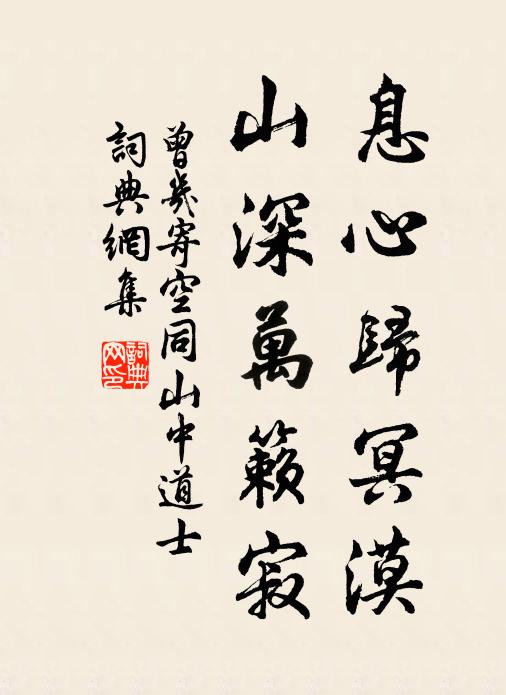 息心歸冥漠
山深萬籟寂
曾幾寄空同山中道士
詞典網集
詞典網印